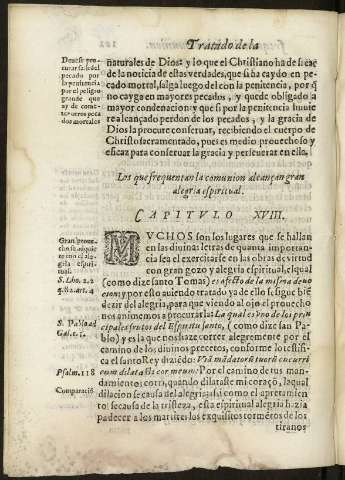 Tratado de la
Deuese pro-
curar salir del
pecado por
la penitencia
por el peligro
grande que
ay de come-
ter otros peca
dos mortales
naturales de Dios: y lo que el Christiano ha de sacar
de la noticia de estas verdades, que si ha caydo en pe-
cado mortal, salga luego del con la penitencia, por q̃
no cayga en mayores pecados, y quede obligado a
mayor condenacion: y que si por la penitencia huuie
re alcançado perdon de los pecados, y la gracia de
Dios la procure conseruar, recibiendo el cuerpo de
Christo sacramentado, pues es medio prouechoso y
eficaz para conseruar la gracia y perseuerar en ella.
Los que frequentan la comunion alcançan gran
alegria espiritual.
CAPITVLO XVIII.
Gran proue-
cho
con el ale-
gria espiri-
tual.
S. Tho. 2.2
q. 82. art. 4
S. Pablo ad
Gal. c. 5.
Psalm. 118
Comparació
MVCHOS son los lugares que se hallan
en las diuinas letras de quanta importan-
cia sea el exercitarse en las obras de virtud
con gran gozo y alegria espiritual, el qual
(como dize santo Tomas) es efecto de la misma deuo
cion: y por esto auiendo tratado ya de ello se sigue bie
dezir del alegria, para que viendo al ojo el prouecho
nos animemos a procurarla: La qual es vno de los prin
cipales frutos del Espiritu santo, (como dize san Pa
blo) y es la que nos haze correr alegremente por el
camino de los diuinos preceptos, conforme lo testifi
ca el santo Rey diziẽdo: Viã mãdatorũ tuorũ cucurri
cum dilatasti cor meum: Por el camino de tus man-
damientos corri, quando dilataste mi coraçõ, la qual
dilacion se causa del alegria: assi como el apretamien-
to se causa de la tristeza, esta espiritual alegria hazia
padecer a los martires los exquisitos tormẽtos de los
tiranos